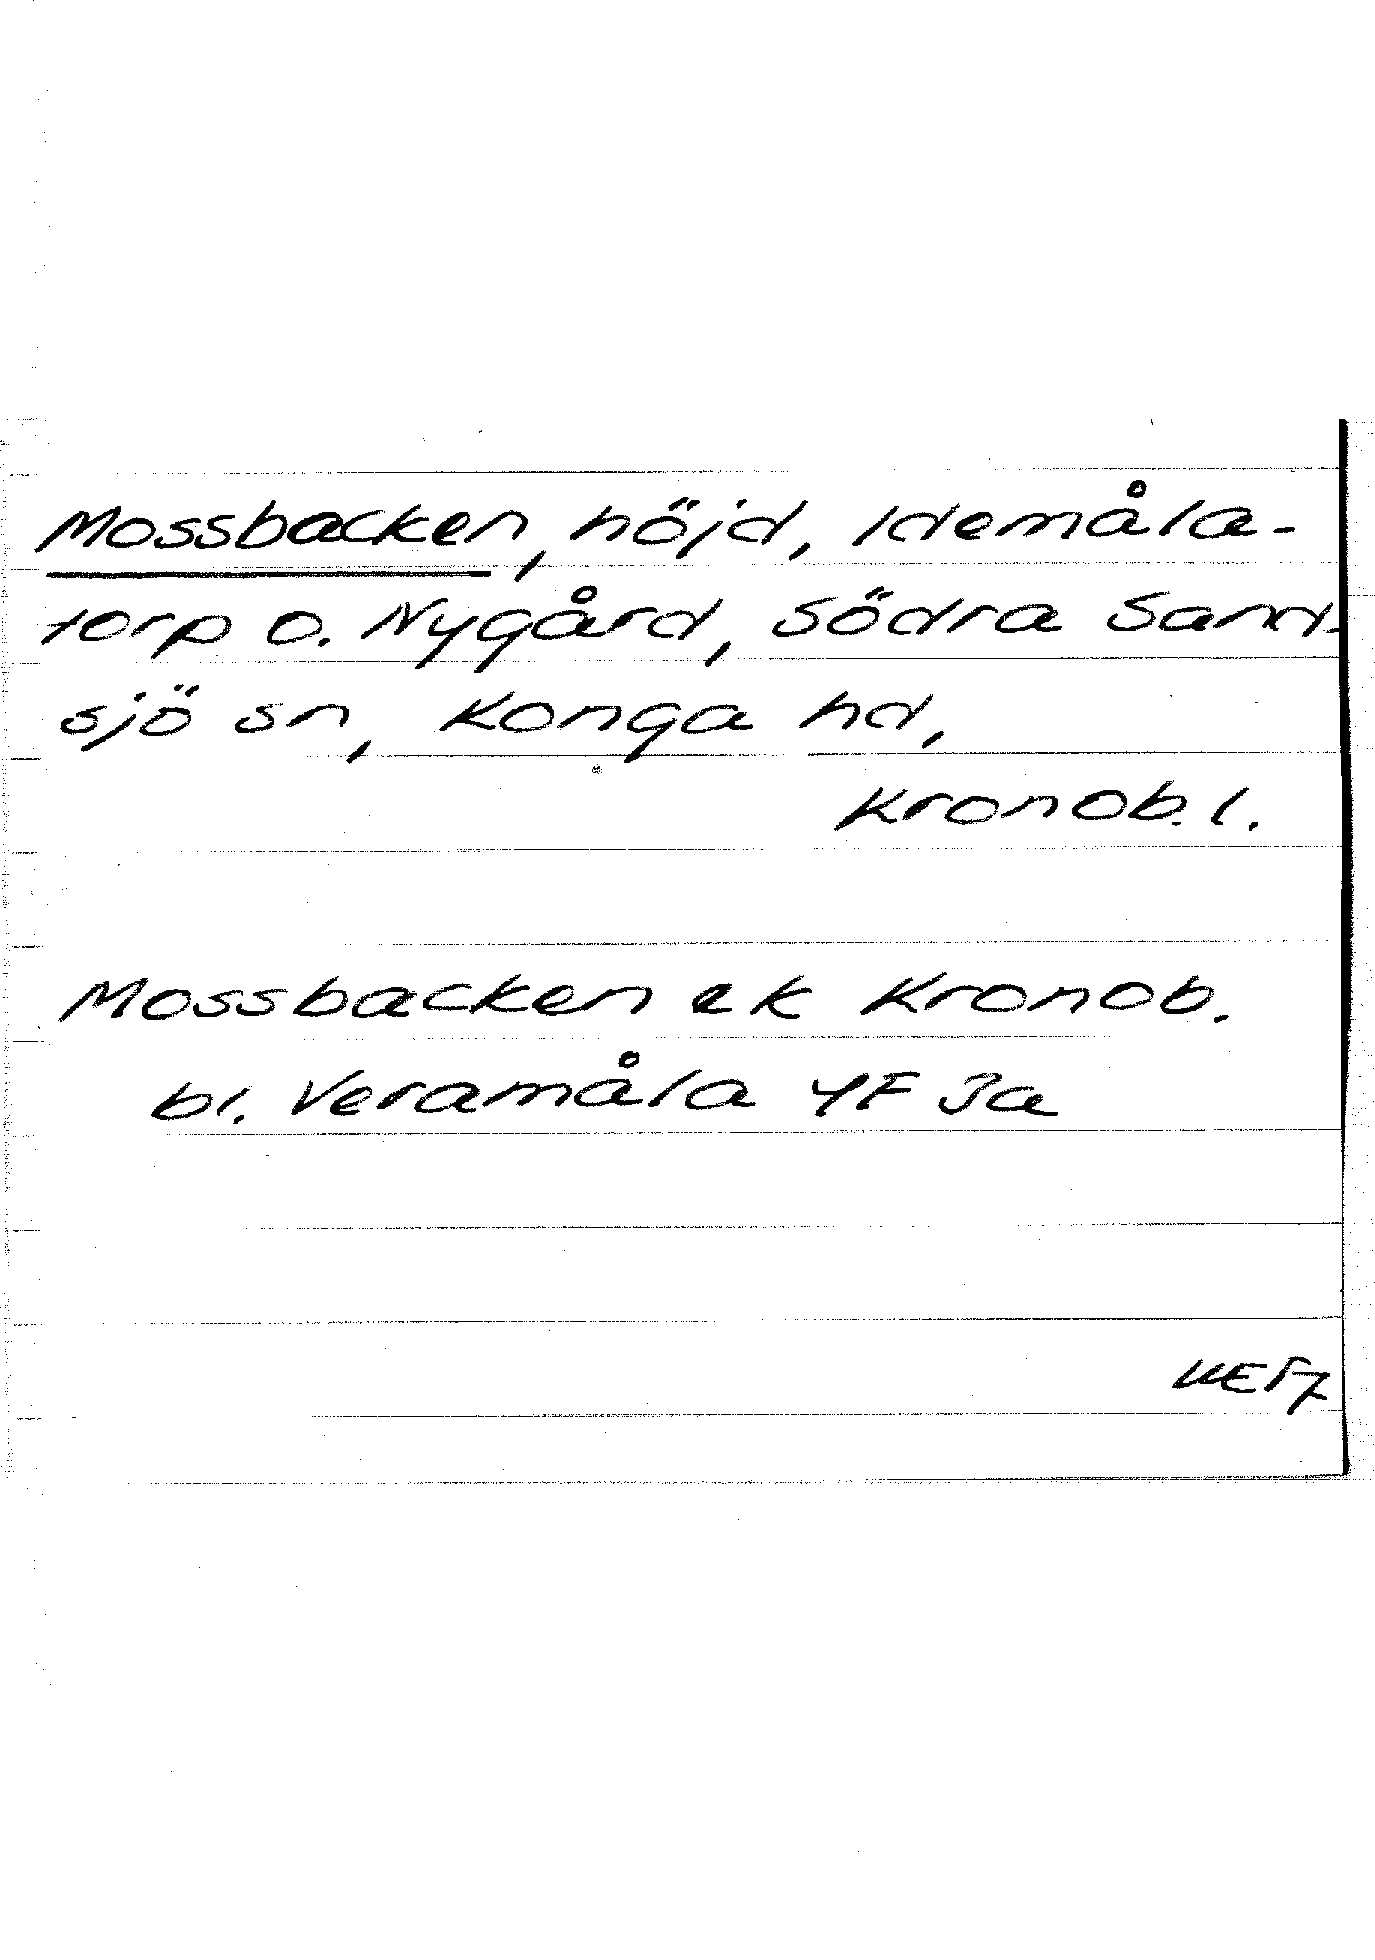 Mossbacken, höjd, Idemåla-
torp o. Nygård, Södra Sand-
sjö sn, Konga hd,
Kronob. l.
Mossbacken ek Kronob.
bl. Veramåla 4F 3a